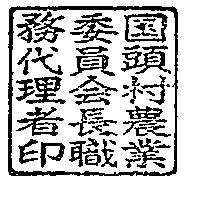 国頭村農業
委員会長職
務代理者印